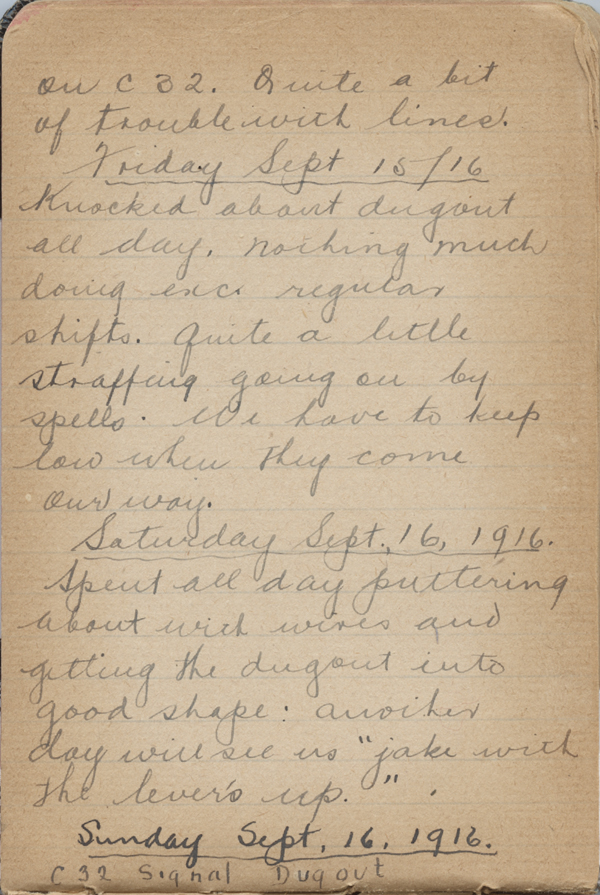 on C 32. Quite a bit
of trouble with lines.
Friday Sept 15/16
Knocked about dugout
all day. nothing much
doing exc. regular
shifts. Quite a little
straffing going on by
spells. We have to keep
low when they come
our way.
Saturday Sept. 16, 1916.
Spent all day puttering
about with wires and
getting the dugout into
good shape: another
day will see us "jake with
the lever's up."
Sunday Sept. 16. 1916.
C 32 Signal Dugout